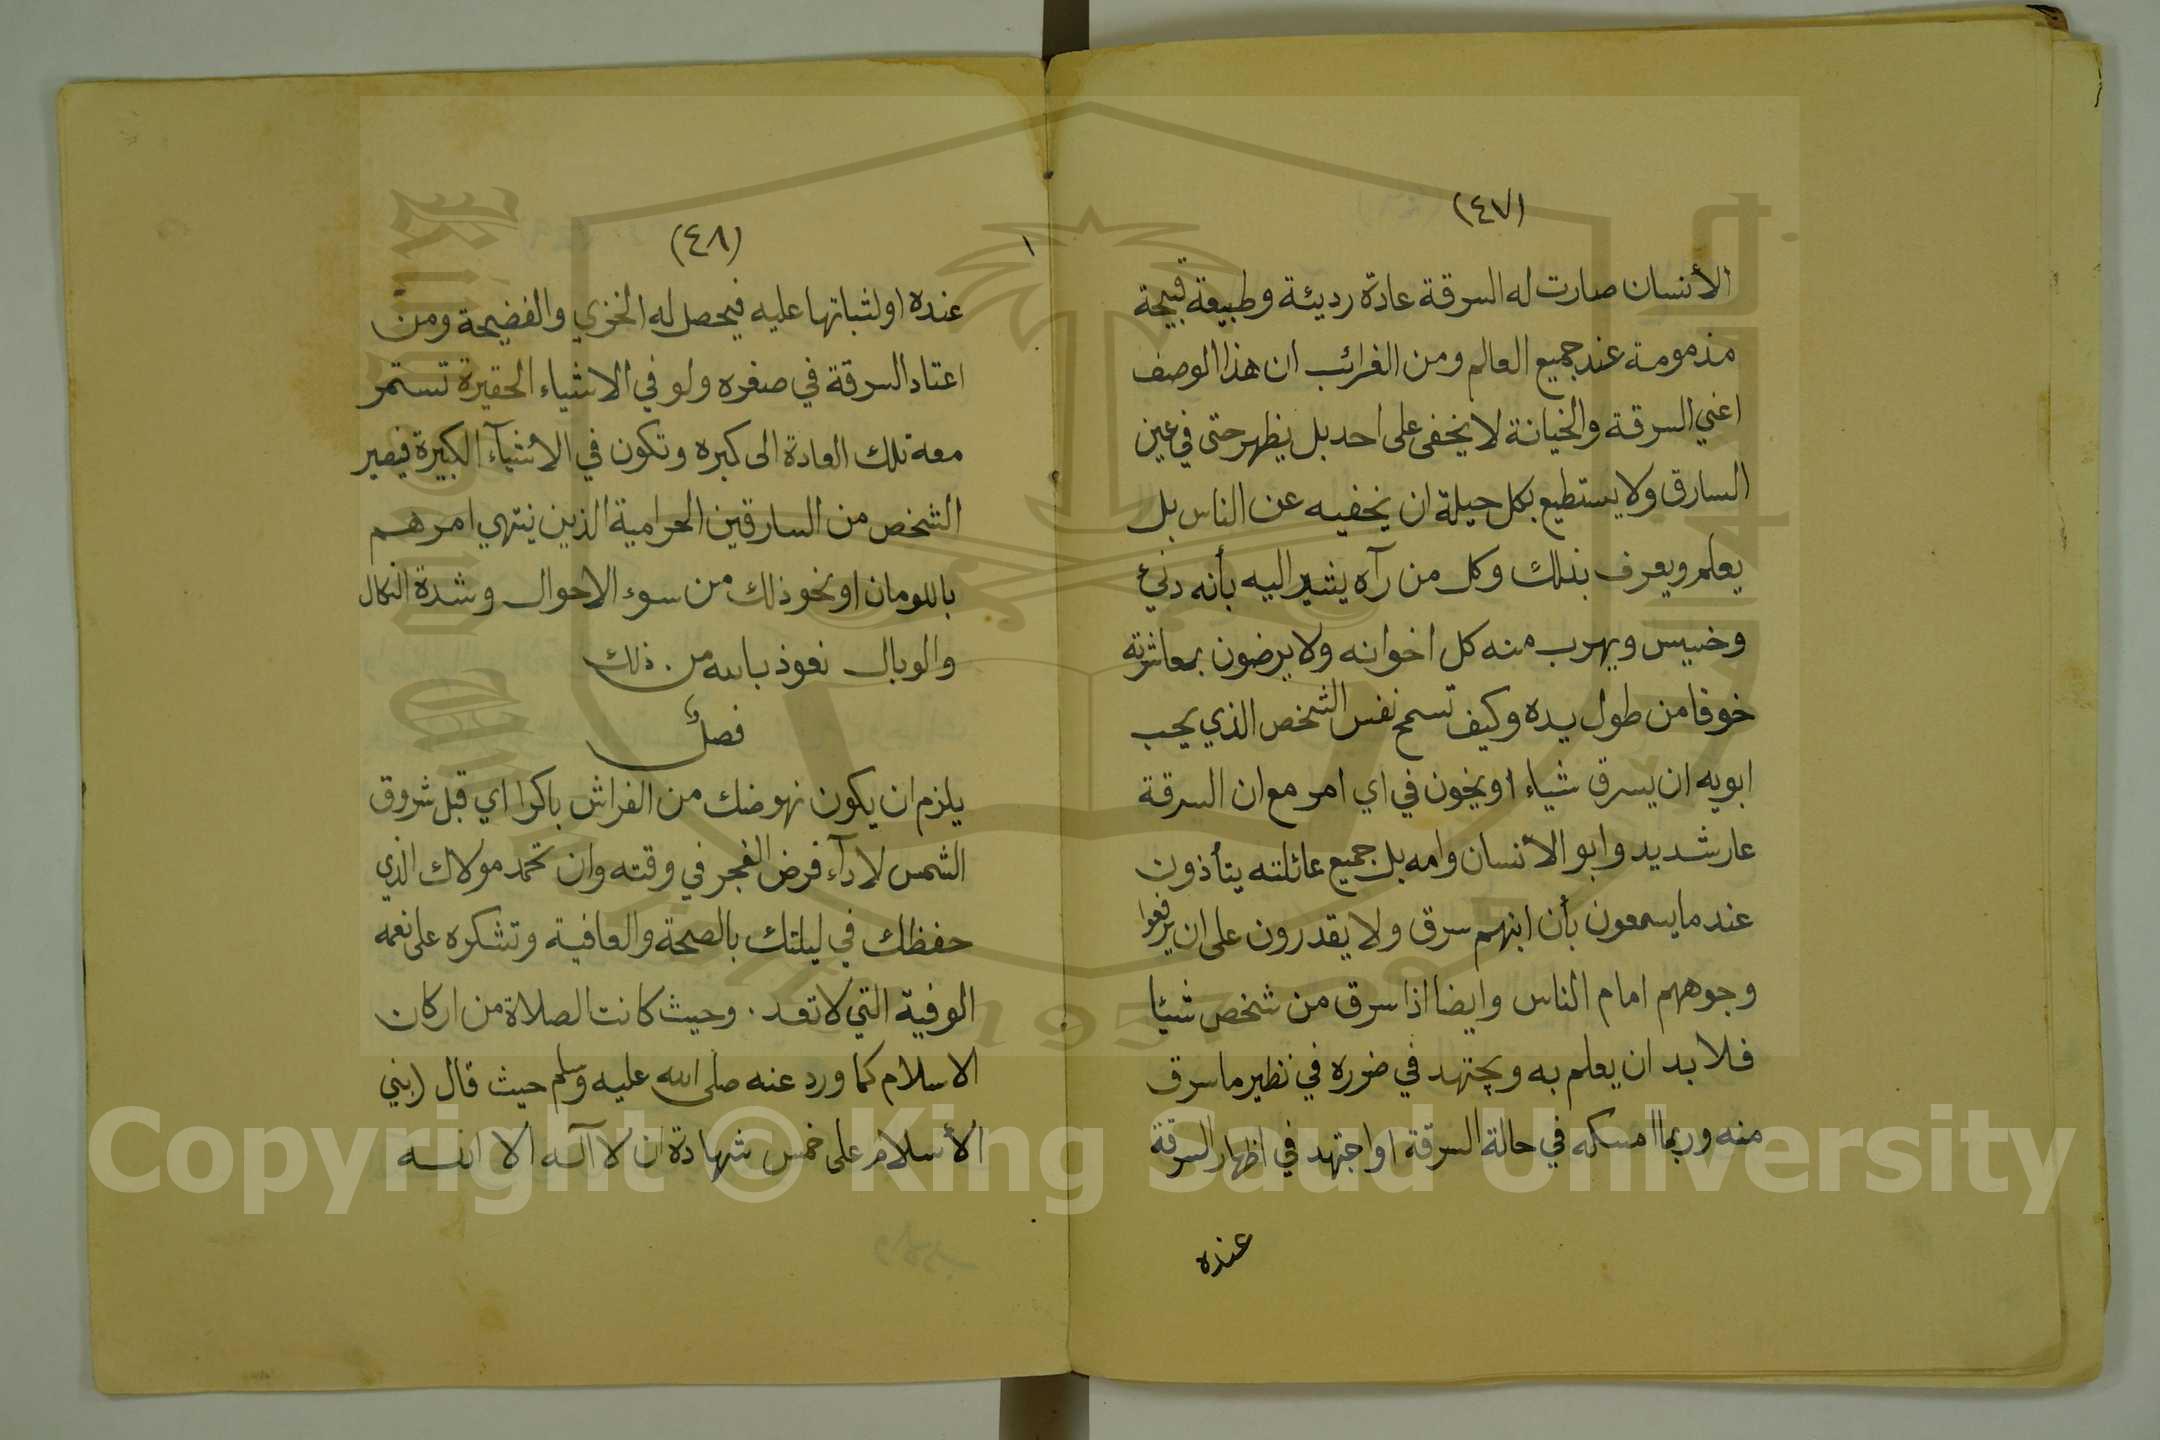 (٤٧)
الأنسان صارت له السرقة عادة رديئة وطبيعة قبيحة
مذمومة عند جميع العالم ومن الغرائب ان هذا الوصف
اعني السرقة والخيانة لا يخفى على احد بل يظهر حتى في عين
السارق ولا يستطيع بكل حيلة ان يخفيه عن الناس بل
يعلم ويعرف بذلك وكل من رآه يشير اليه بأنه دنيء
وخسيس ويهرب منه كل اخوانه ولا يرضون بمعاشرته
خوفا من طول يده وكيف تسمح نفس الشخص الذي يحب
ابويه ان يسرق شياء او يخون في اي امر مع ان السرقة
عار شديد وابو الأنسان وامه بل جميع عائلته يتأذون
عند ما يسمعون بأن ابنهم سرق ولا يقدرون على ان يرفعوا
وجوههم امام الناس وايضا اذا سرق من شخص شيئا
فلا بد ان يعلم به ويجتهد في ضرره في نظير ما سرق
منه وربما امسكه في حالة السرقة او اجتهد في اظهار السرقة
عنده
(٤٨)
١
عنده او لثباتها عليه فيحصل له الخزي والفضيحة ومن
اعتاد السرقة في صغره ولو في الاشياء الحقيرة تستمر
معه تلك العادة الى كبره وتكون في الاشيآء الكبيرة فيصير
الشخص من السارقين الحرامية الذين ينتهي امرهم
باللومان او نحو ذلك من سوء الاحوال وشدة النكال
والوبال نعوذ بالله من ذلك
فصل
يلزم ان يكون نهوضك من الفراش باكرا اي قبل شروق
الشمس لادآء فرض الفجر في وقته وان تحمد مولاك الذي
حفظك في ليلتك بالصحة والعافية وتشكره على نعمه
الوفية التي لا تعد . وحيث كانت الصلاة من اركان
الاسلام كما ورد عنه صلى الله عليه وسلم حيث قال (بني
الأسلام على خمس شهادة ان لا آله الا الله
Copyright © King Saud University
1957